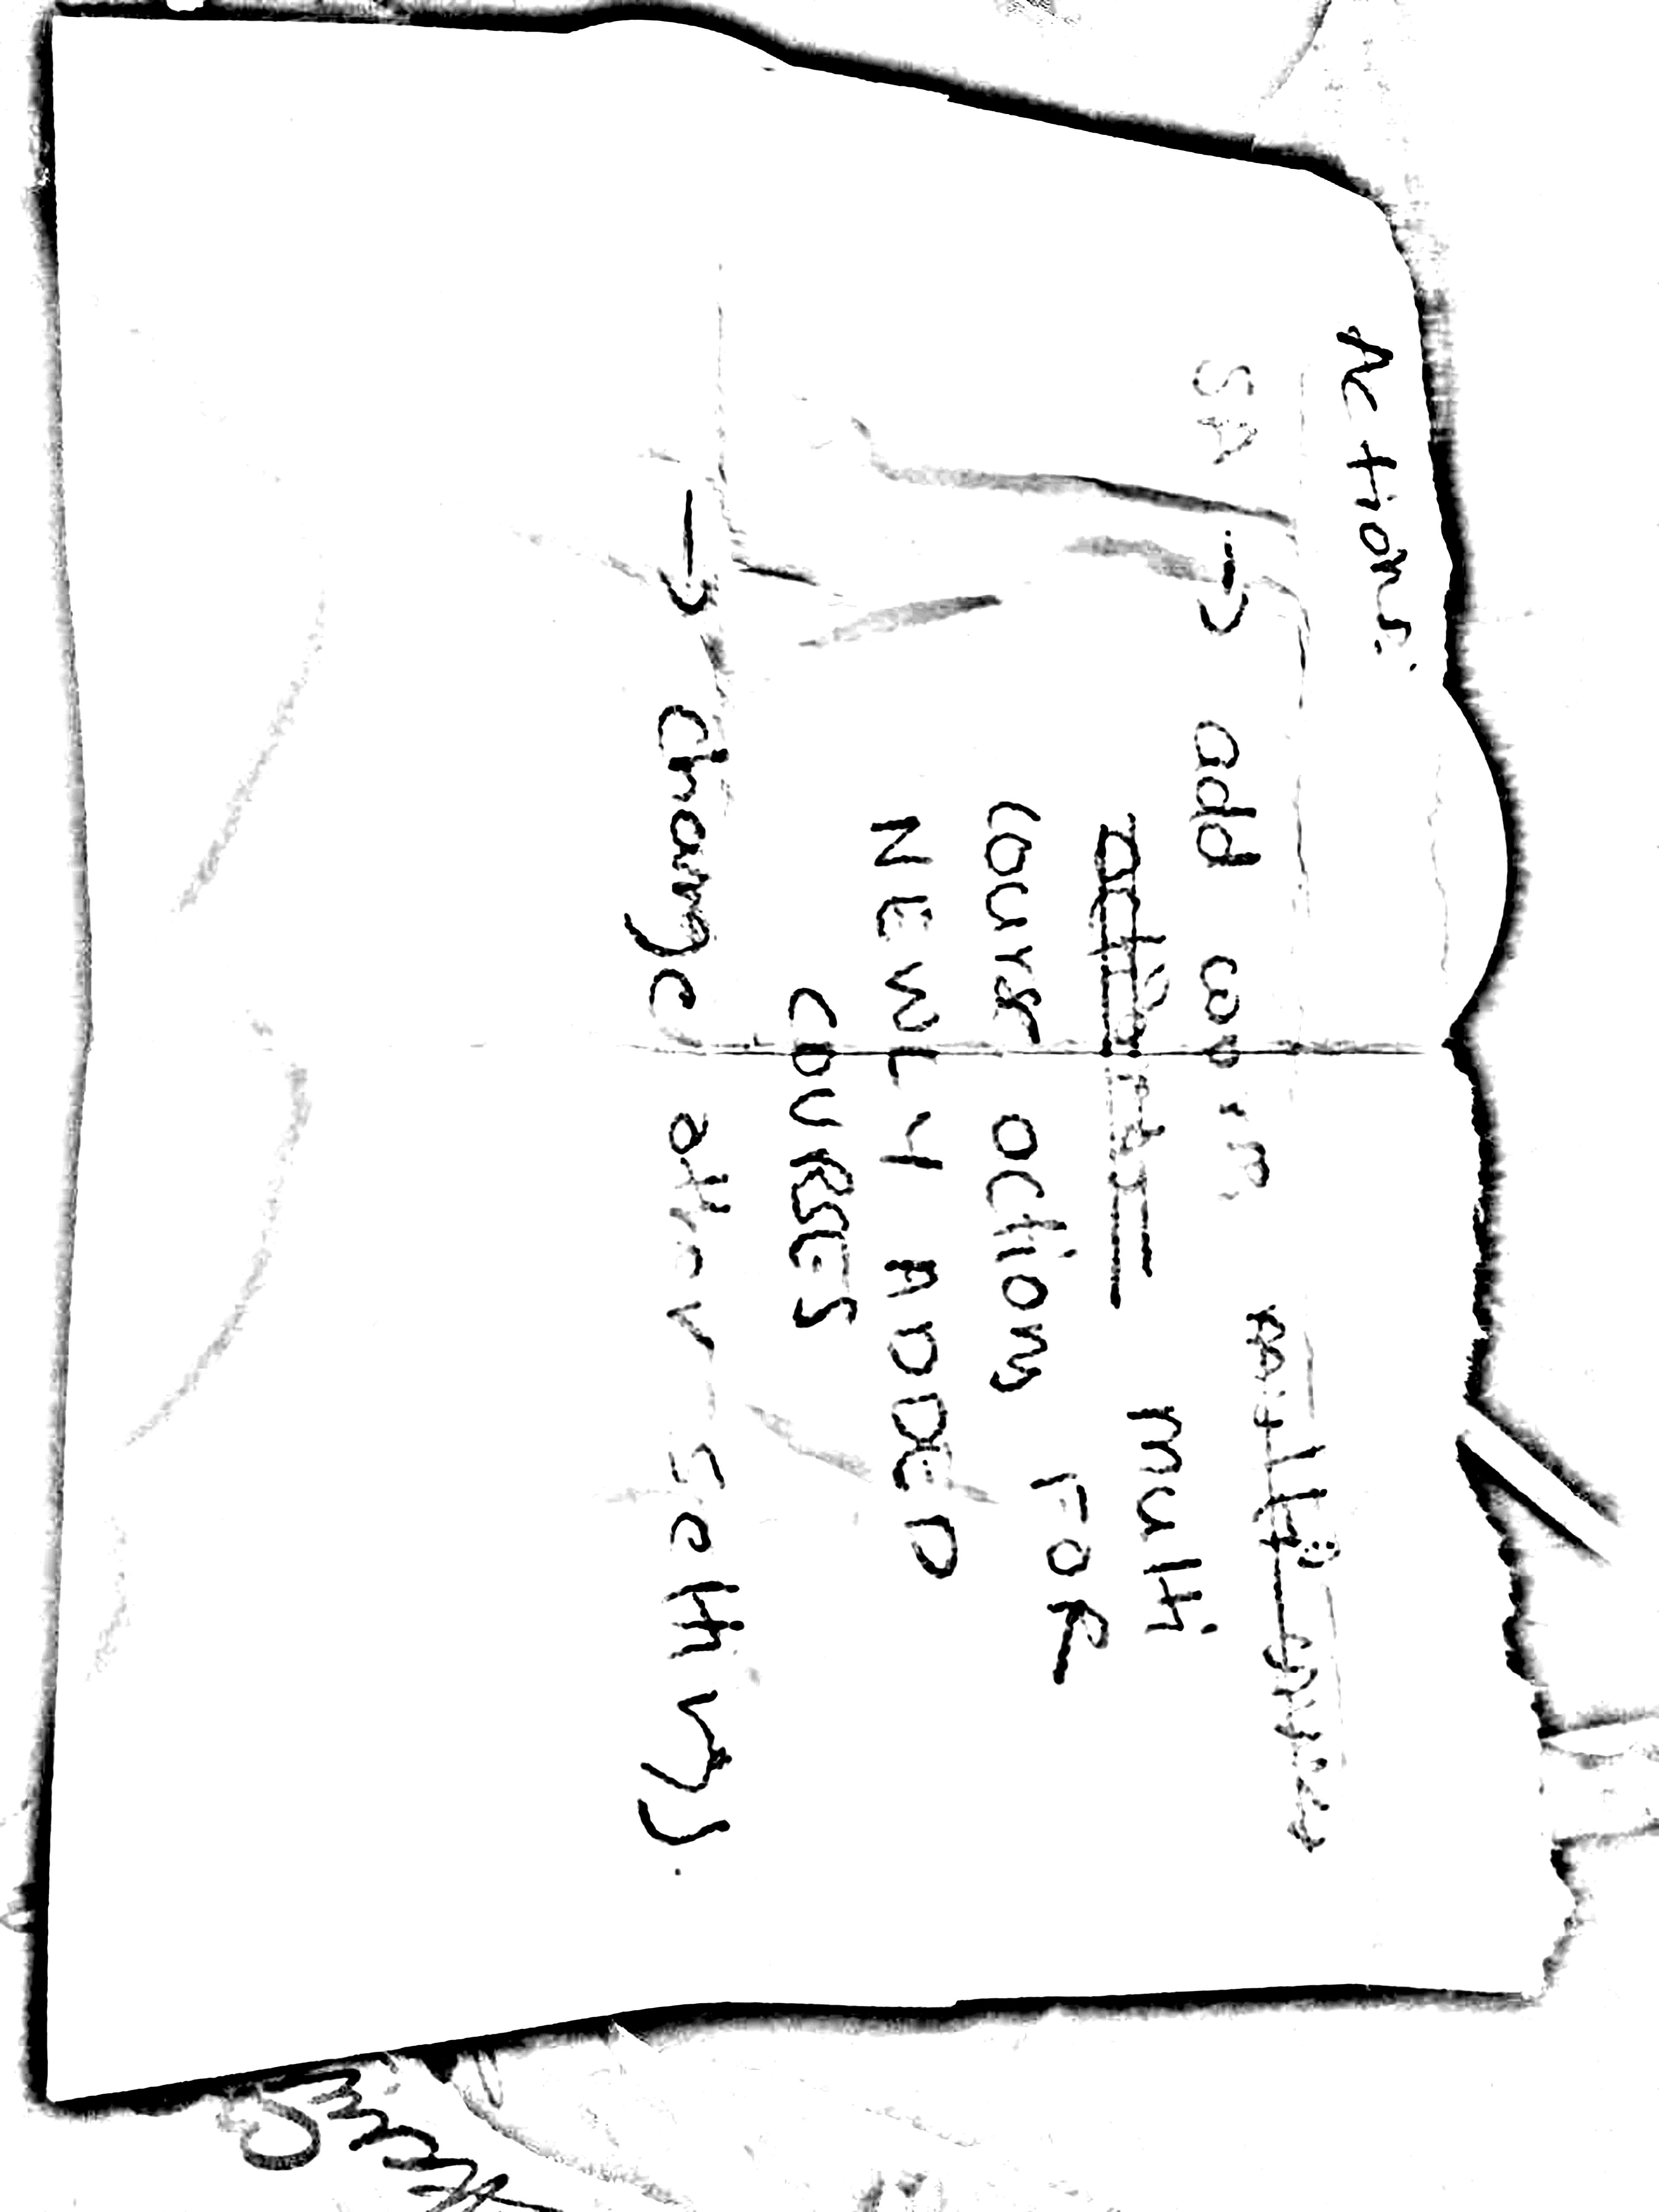 Actions:
SA → add worm
multi
course actions FOR
NEWLY ADDED
COURSES
→ change other settings.